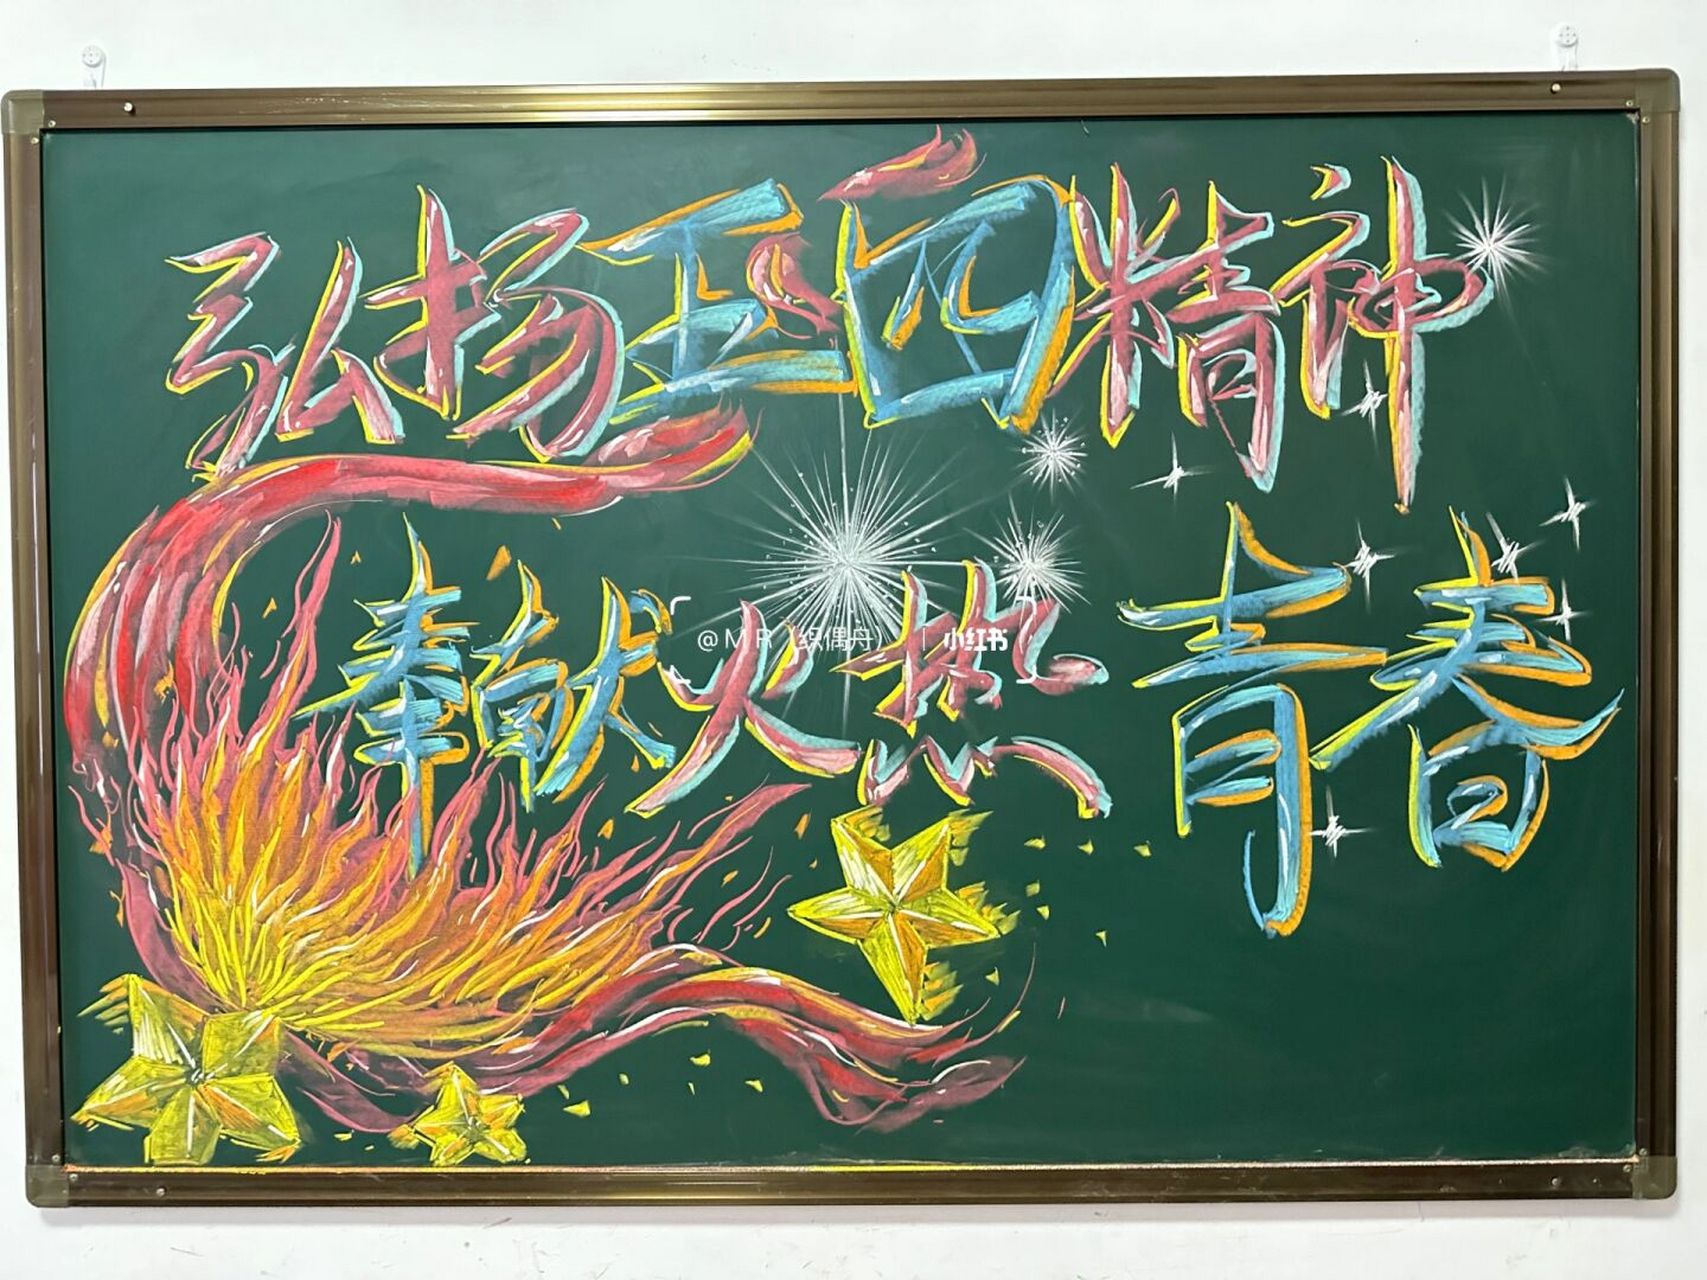 弘扬五四精神
奉献火热青春
@MR（织偶舟） | 小红书